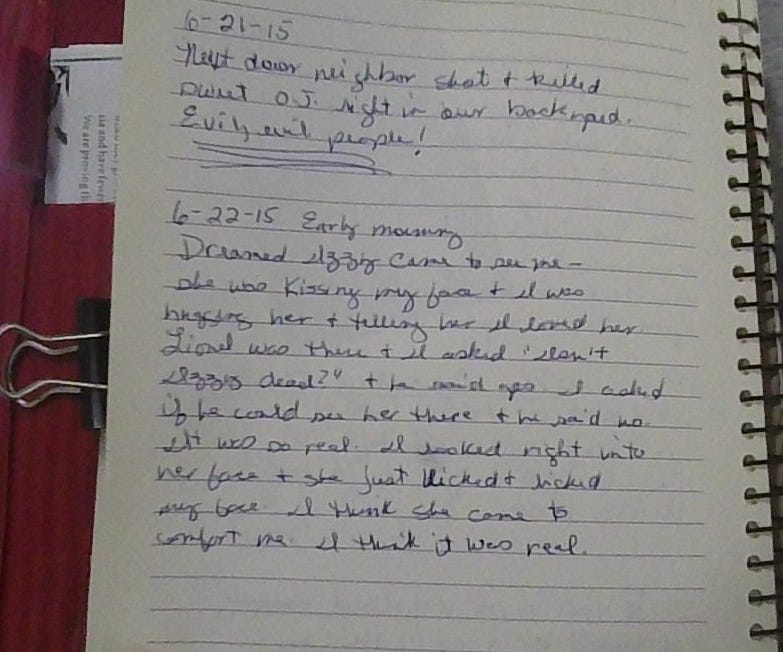 6-21-15
Next door neighbor shot & killed
sweet O.J. right in our backyard.
Evil, evil people!
6-22-15 Early morning
Dreamed Izzy came to see me -
she was kissing my face & I was
hugging her & telling her I loved her.
Lionel was there & I asked "Isn't
Izzy dead?" & he said yes I asked
if he could see her there & he said no.
It was so real. I looked right into
her face & she just licked & licked
my face I think she came to
comfort me. I think it was real.
us and have
We are proving th